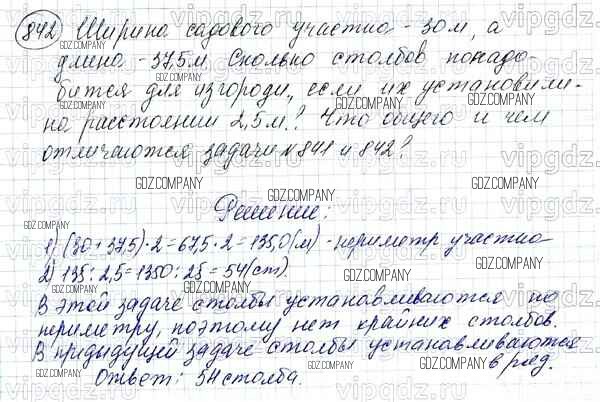 842 Ширина садового участка - 30 м, а
длина - 37,5 м. Сколько столбов понадо-
бится для изгороди, если их установили
на расстоянии 2,5 м? Что общего и чем
отличаются задачи №841 и 842?
Решение:
1) (30+37,5)·2=67,5·2=135,0(м) - периметр участка
2) 135:2,5=1350:25=54(ст).
В этой задаче столбы устанавливаются по
периметру, поэтому нет крайних столбов.
В предидущей задаче столбы устанавливаются
в ряд.
Ответ: 54 столба.